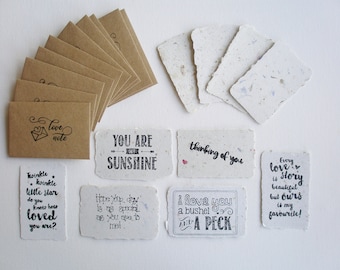 love
note
YOU ARE
MY
SUNSHINE
thinking of you
twinkle
twinkle
little star
do you
know how
loved
you are?
Hope your day
is as special
as you are to
me!
i love you
a bushel
and
A PECK
Every
love
story is
beautiful
but ours
is my
favourite!